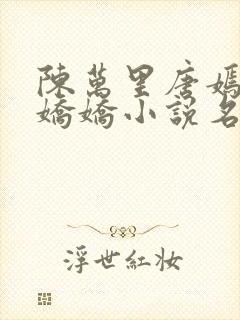 陳萬里唐嫣
嬌嬌小說名
浮世紅妝